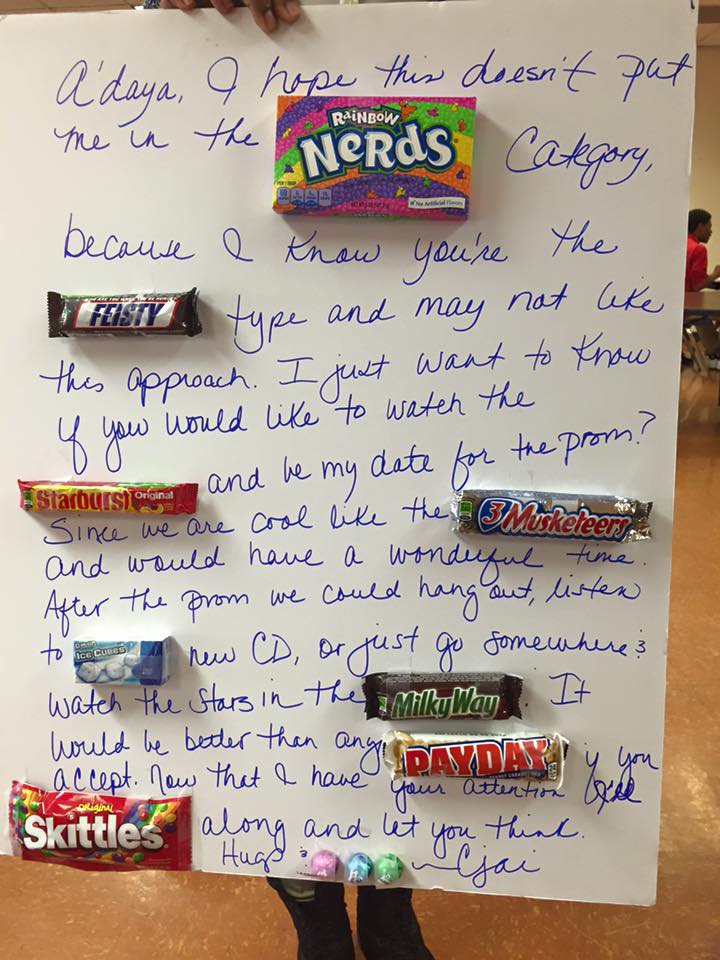 A'daya, I hope this doesn't put
me in the RAINBOW NeRdS Category,
because I know you're the
FEISTY type and may not like
this approach. I just want to know
if you would like to watch the
Starburst Original and be my date for the prom?
Since we are cool like the 3 Musketeers
and would have a wonderful time.
After the prom we could hang out, listen
to ICE CUBES new CD, or just go somewhere &
watch the stars in the Milky Way. It
would be better than any PAYDAY if you
accept. Now that I have your attention I'll
ORIGINAL Skittles along and let you think.
Hugs & ~Cjai